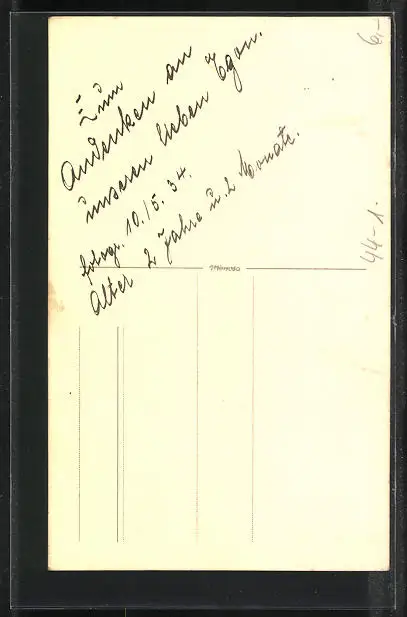 Zum
Andenken an
unseren lieben Egon.
fotogr. 10./5. 34.
Alter 2 Jahre u. 2 Monate.
Mimosa
6,-
44-1.